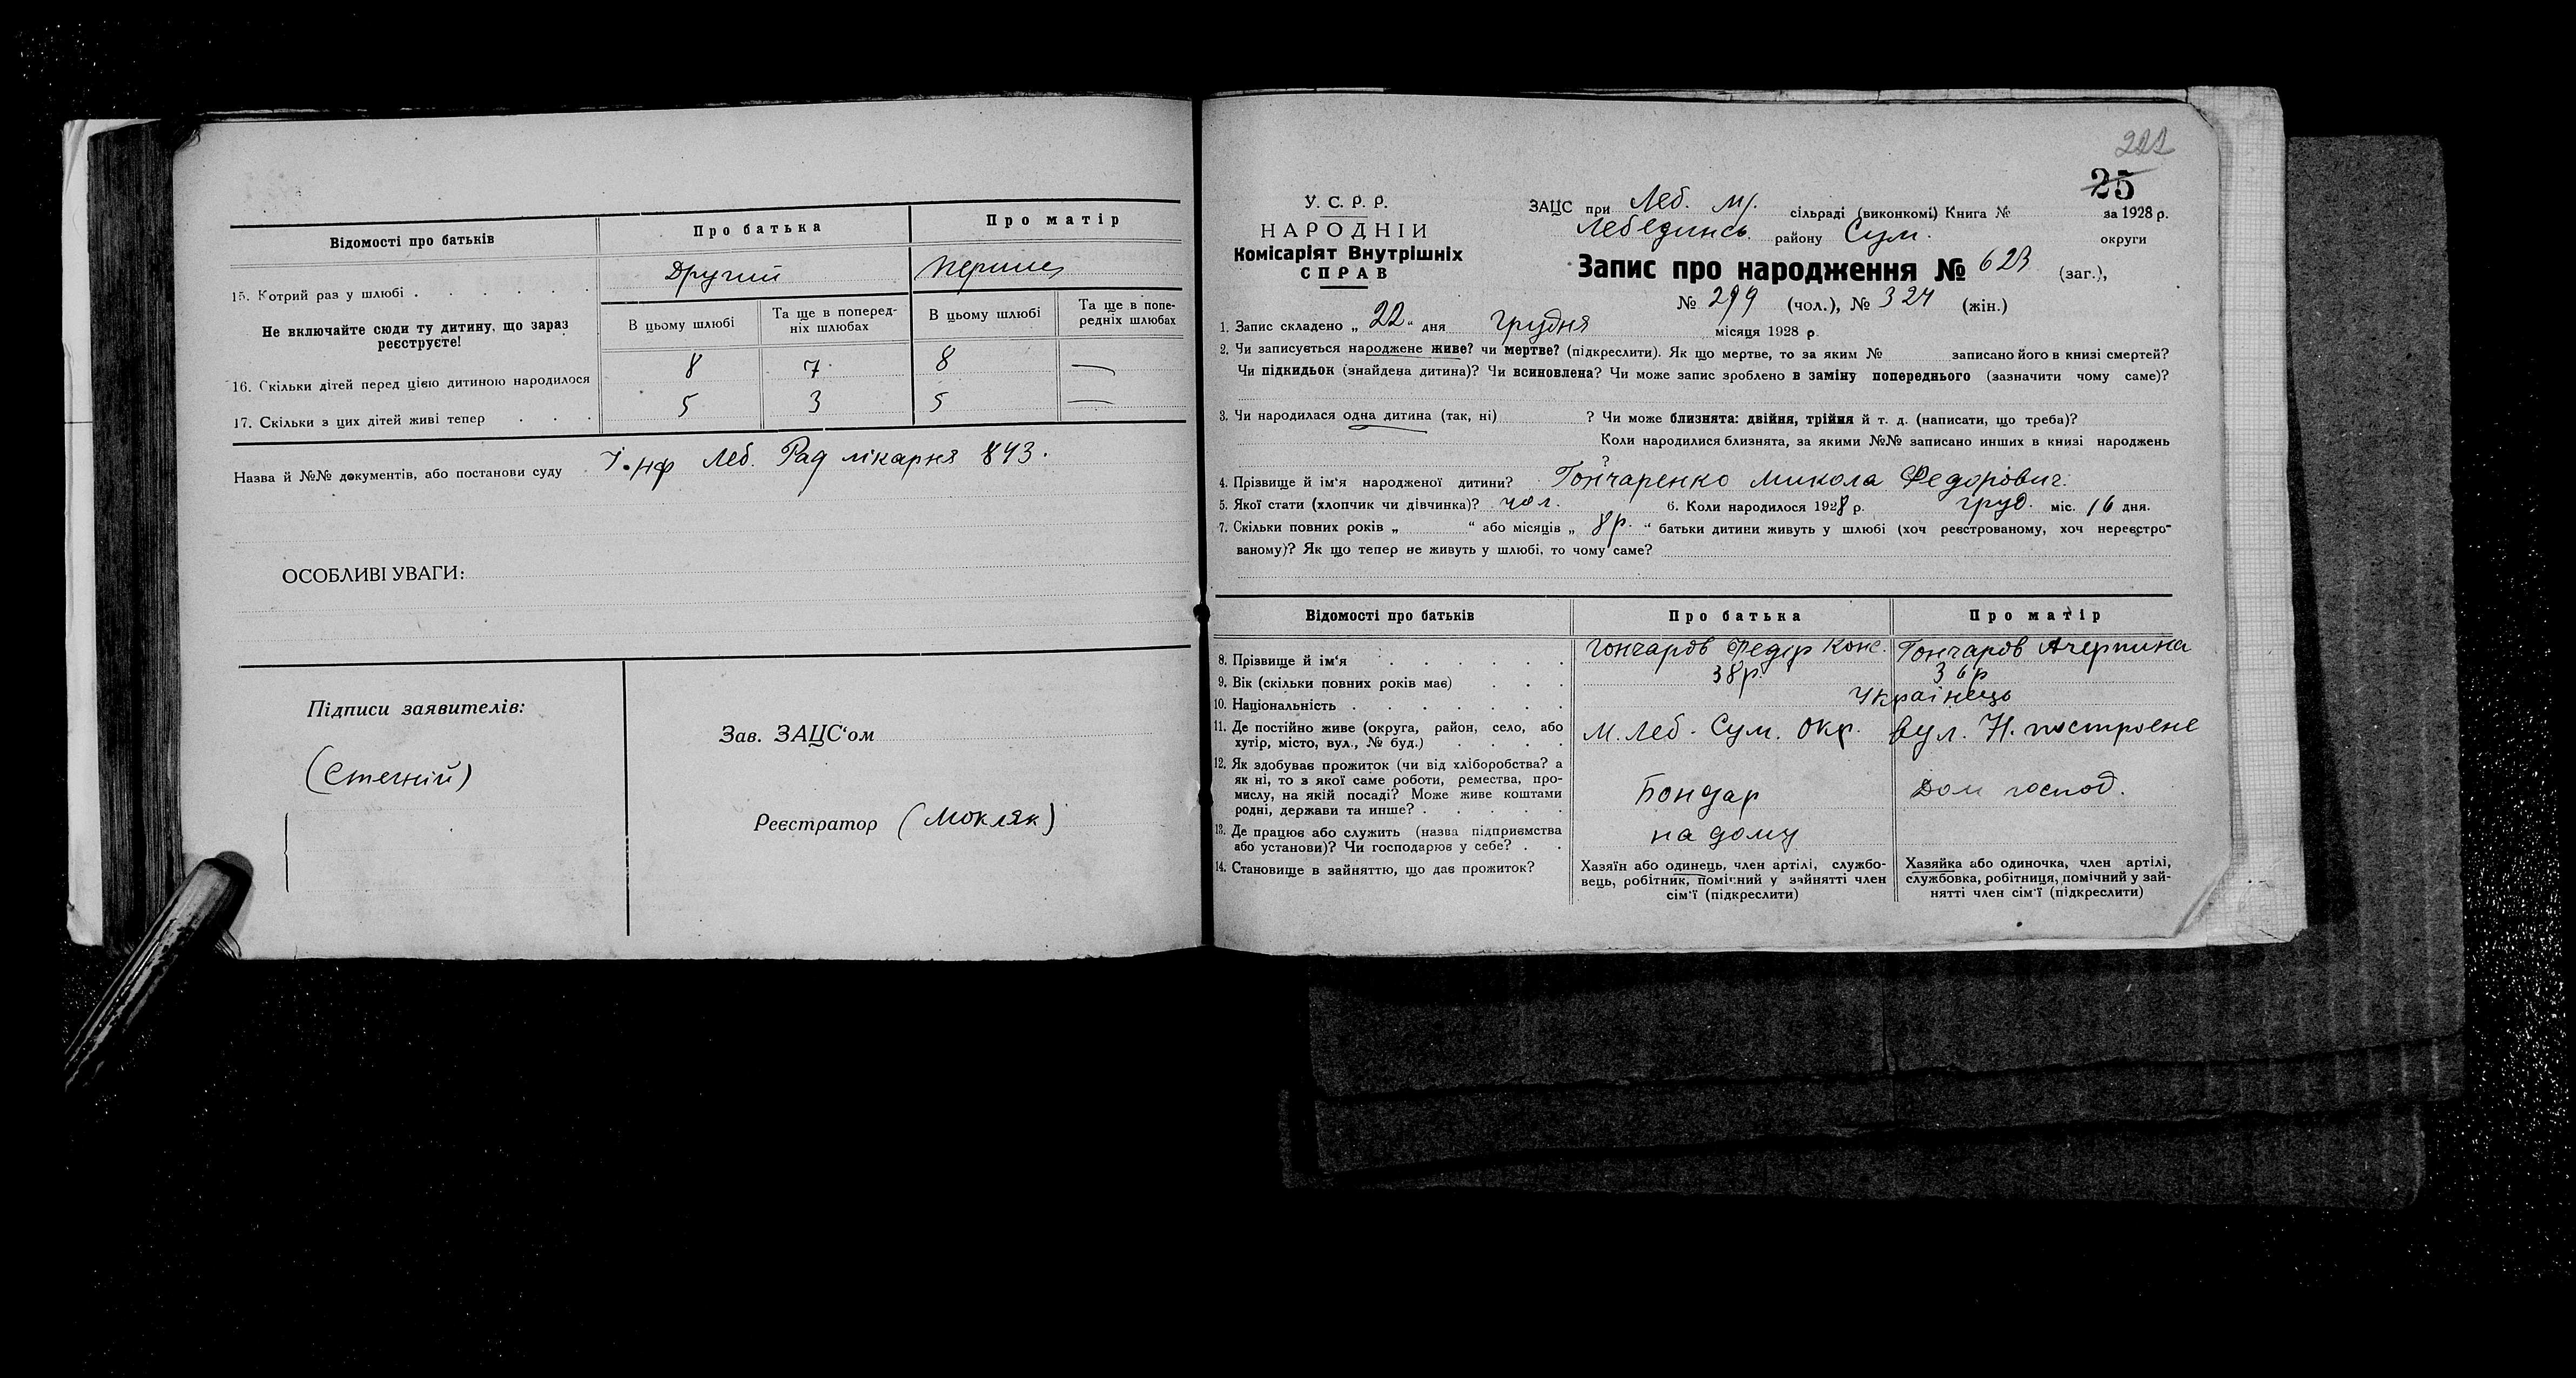 Відомості про батьків
Про батька
Про матір
15. Котрий раз у шлюбі
Другий
перши
Не включайте сюди ту дитину, що зараз реєструєте!
В цьому шлюбі
Та ще в попередніх шлюбах
В цьому шлюбі
Та ще в попередніх шлюбах
16. Скільки дітей перед цією дитиною народилося
8
7
8
—
17. Скільки з цих дітей живі тепер
5
3
5
—
Назва й №№ документів, або постанови суду Інф Леб. Рад лікарня 843.
ОСОБЛИВІ УВАГИ:
Підписи заявителів:
(Стечній)
Зав. ЗАЦС‘ом
Реєстратор (Мокляк)
222
25
У. С. Р. Р.
НАРОДНІЙ
Комісаріят Внутрішніх
СПРАВ
ЗАЦС при Леб. м/. сільраді (виконкомі) Книга № за 1928 р.
Лебединсь. району Сум. округи
Запис про народження № 623 (заг.),
№ 299 (чол.), № 324 (жін.)
1. Запис складено „ 22 “ дня грудня місяця 1928 р.
2. Чи записується народжене живе? чи мертве? (підкреслити). Як що мертве, то за яким № записано його в книзі смертей?
Чи підкидьок (знайдена дитина)? Чи всиновлена? Чи може запис зроблено в заміну попереднього (зазначити чому саме)?
3. Чи народилася одна дитина (так, ні) ? Чи може близнята: двійня, трійня й т. д. (написати, що треба)?
Коли народилися близнята, за якими №№ записано инших в книзі народжень
?
4. Прізвище й ім‘я народженої дитини? Гончаренко Микола Федорович.
5. Якої стати (хлопчик чи дівчинка)? чол. 6. Коли народилося 1928 р. груд. міс. 16 дня.
7. Скільки повних років „ “ або місяців „ 8р. “ батьки дитини живуть у шлюбі (хоч реєстрованому, хоч нереєстро-
ваному)? Як що тепер не живуть у шлюбі, то чому саме?
Відомості про батьків
Про батька
Про матір
8. Прізвище й ім‘я
Гончаров Федір Конс.
Гончаров
9. Вік (скільки повних років має)
38р.
36р
10. Національність
Українець
11. Де постійно живе (округа, район, село, або
хутір, місто, вул., № буд.)
М. Леб. Сум. Окр. вул. Н. построєне
12. Як здобуває прожиток (чи від хліборобства? а
як ні, то з якої саме роботи, ремества, про-
мислу, на якій посаді? Може живе коштами
родні, держави та инше?
Бондар
Дом господ.
13. Де працює або служить (назва підприємства
або установи)? Чи господарює у себе?
на дому
14. Становище в зайняттю, що дає прожиток?
Хазяїн або одинець, член артілі, службо-
вець, робітник, помічний у зайнятті член
сім‘ї (підкреслити)
Хазяйка або одиночка, член артілі,
службовка, робітниця, помічний у зай-
нятті член сім‘ї (підкреслити)